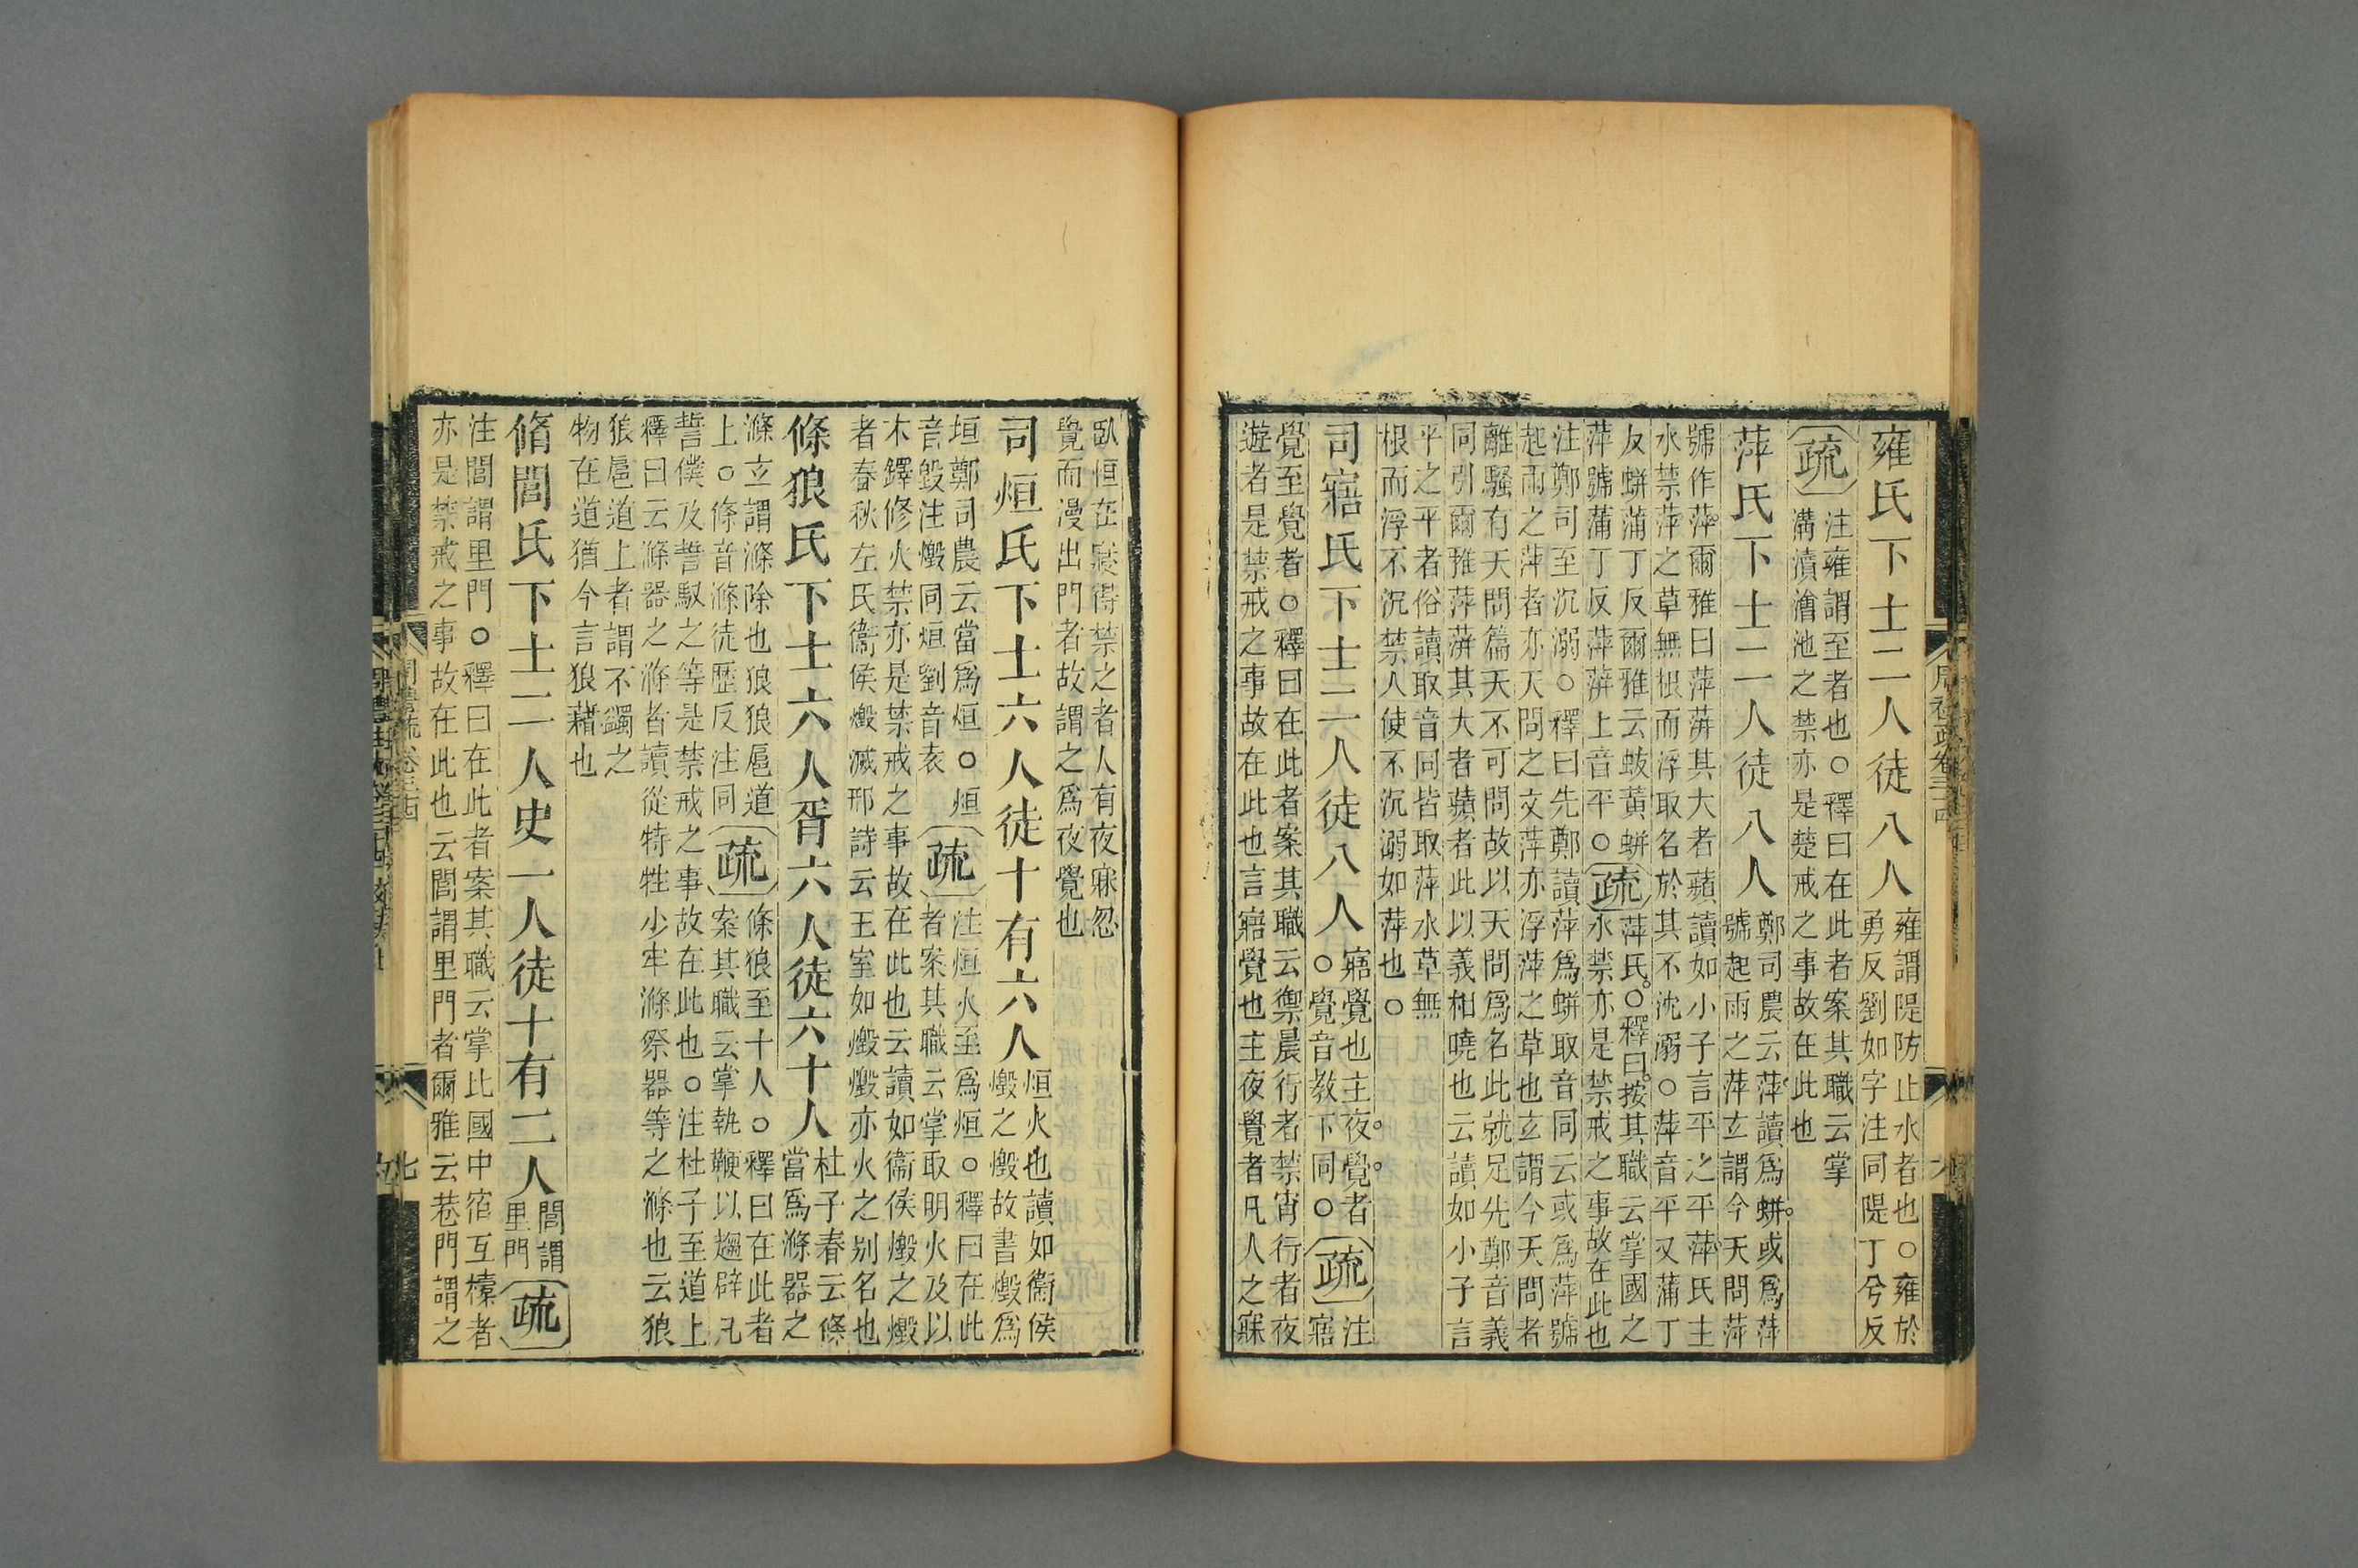 雍氏下士二人徒八人
雍謂隄防止水者也○雍於
勇反劉如字注同隄丁兮反
疏
注雍謂至者也○釋曰在此者案其職云掌
溝瀆澮池之禁亦是楚戒之事故在此也
萍氏下士二人徒八人
鄭司農云萍讀爲蛢或爲萍
號起雨之萍玄謂今天問萍
號作萍爾雅曰萍蓱其大者蘋讀如小子言平之平萍氏主
水禁萍之草無根而浮取名於其不沈溺○萍音平又蒲丁
反蛢蒲丁反爾雅云蛂蟥蛢
萍號蒲丁反萍蓱上音平○
疏
萍氏○釋曰按其職云掌國之
水禁亦是禁戒之事故在此也
注鄭司至沉溺○釋曰先鄭讀萍爲蛢取音同云或爲萍號
起雨之萍者亦天問之文萍亦浮萍之草也玄謂今天問者
離騷有天問篇天不可問故以天問爲名此就足先鄭音義
同引爾雅萍蓱其大者蘋者此以義相曉也云讀如小子言
平之平者俗讀取音同皆取萍水草無
根而浮不沉禁人使不沉溺如萍也○
司寤氏下士二人徒八人
寤覺也主夜覺者
○覺音教下同○
疏
注
寤
覺至覺者○釋曰在此者案其職云禦晨行者禁宵行者夜
遊者是禁戒之事故在此也言寤覺也主夜覺者凡人之寐
臥恒在寢得禁之者人有夜寐忽
覺而漫出門者故謂之爲夜覺也
司烜氏下士六人徒十有六人
烜火也讀如衞侯
燬之燬故書燬爲
垣鄭司農云當爲烜○烜
音毀注燬同烜劉音袁
疏
注烜火至爲烜○釋曰在此
者案其職云掌取明火及以
木鐸修火禁亦是禁戒之事故在此也云讀如衞侯燬之燬
者春秋左氏衞侯燬滅邢詩云王室如燬燬亦火之别名也
條狼氏下士六人胥六人徒六十人
杜子春云條
當爲滌器之
滌玄謂滌除也狼狼扈道
上○條音滌徒歷反注同
疏
條狼至十人○釋曰在此者
案其職云掌執鞭以趨辟凡
誓僕及誓馭之等是禁戒之事故在此也○注杜子至道上
釋曰云滌器之滌者讀從特牲少牢滌祭器等之滌也云狼
狼扈道上者謂不蠲之
物在道猶今言狼藉也
脩閭氏下士二人史一人徒十有二人
閭謂
里門
疏
注閭謂里門○釋曰在此者案其職云掌比國中宿互㯓者
亦是禁戒之事故在此也云閭謂里門者爾雅云巷門謂之